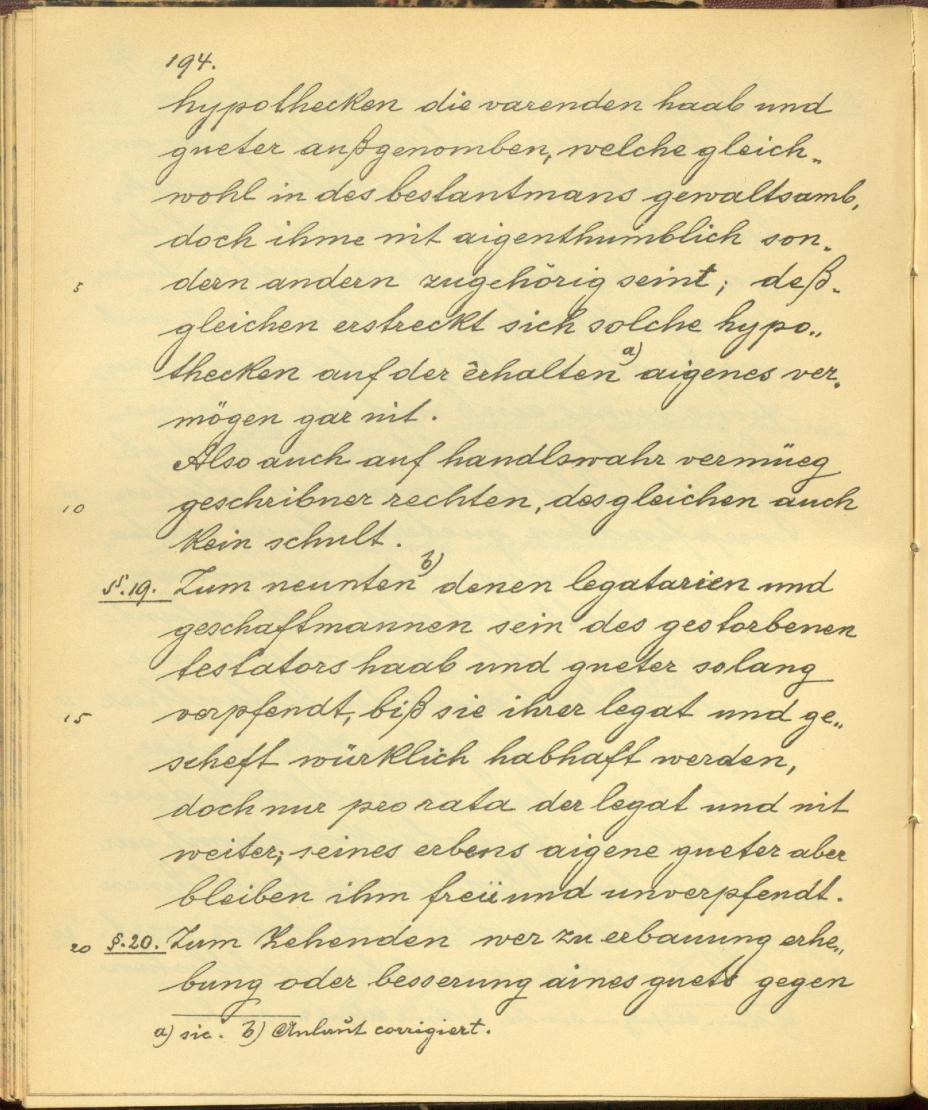 194.
hypothecken die varenden haab und
gueter außgenomben, welche gleich„
wohl in des bestantmans gewaltsamb,
doch ihme nit aigenthumblich son„
5 dern andern zugehörig seint; deß-
gleichen erstreckt sich solche hypo„
thecken auf der erhalten a) aigenes ver„
mögen gar nit.
Also auch auf handlswahr vermüeg
10 geschribner rechten, desgleichen auch
kein schult.
§.19. Zum neunten b) denen legatarien und
geschaftmannen sein des gestorbenen
testators haab und gueter solang
15 verpfendt, biß sie ihrer legat und ge„
scheft würklich habhaft werden,
doch nur pro rata der legat und nit
weiter; seines erbens aigene gueter aber
bleiben ihm freü und unverpfendt.
20 §.20. Zum Zehenden wer zu erbauung erhe„
bung oder besserung aines guets gegen
a) sic. b) Anlaut corrigiert.